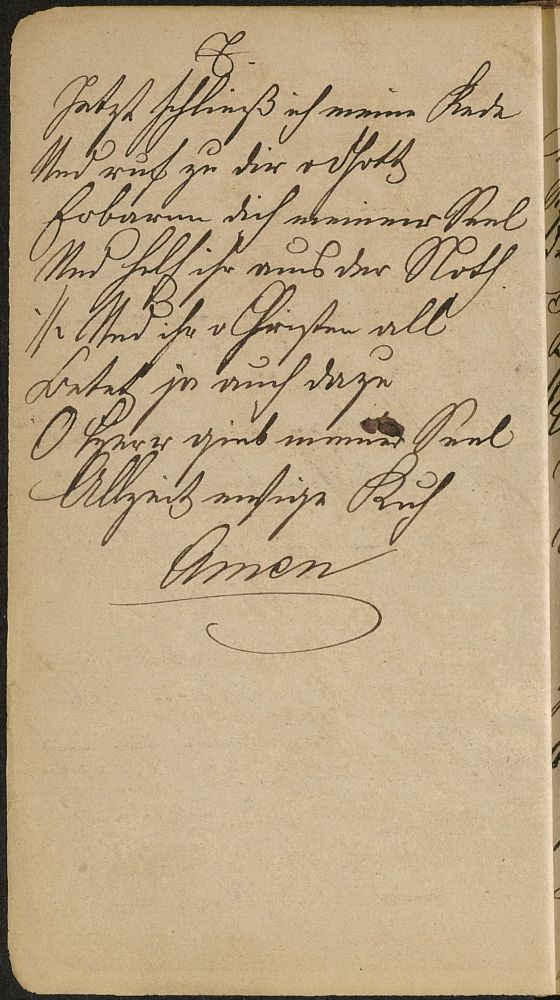 8.
Jetzt schließ ich meine Rede
Und ruf zu dir o Gott
Erbarm dich meiner Seel
Und helf ihr aus der Noth
//: Und ihr o Christen all
Betet ja auch dazu
O Herr gieb meiner Seel
Allzeit ewige Ruh
Amen